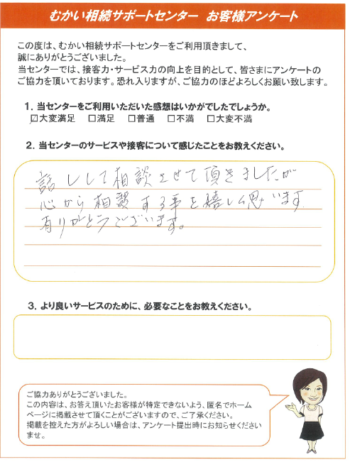 むかい相続サポートセンター お客様アンケート
この度は、むかい相続サポートセンターをご利用頂きまして、
誠にありがとうございました。
当センターでは、接客力・サービス力の向上を目的として、皆さまにアンケートの
ご協力を頂いております。恐れ入りますが、ご協力のほどよろしくお願い致します。
1. 当センターをご利用いただいた感想はいかがでしたでしょうか。
☑大変満足 □満足 □普通 □不満 □大変不満
2. 当センターのサービスや接客について感じたことをお教えください。
して相談させて頂きましたが
心から相談する事を嬉しく思います
ありがとうございます。
3. より良いサービスのために、必要なことをお教えください。
ご協力ありがとうございました。
この内容は、お答え頂いたお客様が特定できないよう、匿名でホーム
ページに掲載させて頂くことがございますので、ご了承ください。
掲載を控えた方がよろしい場合は、アンケート提出時にお知らせください
ませ。